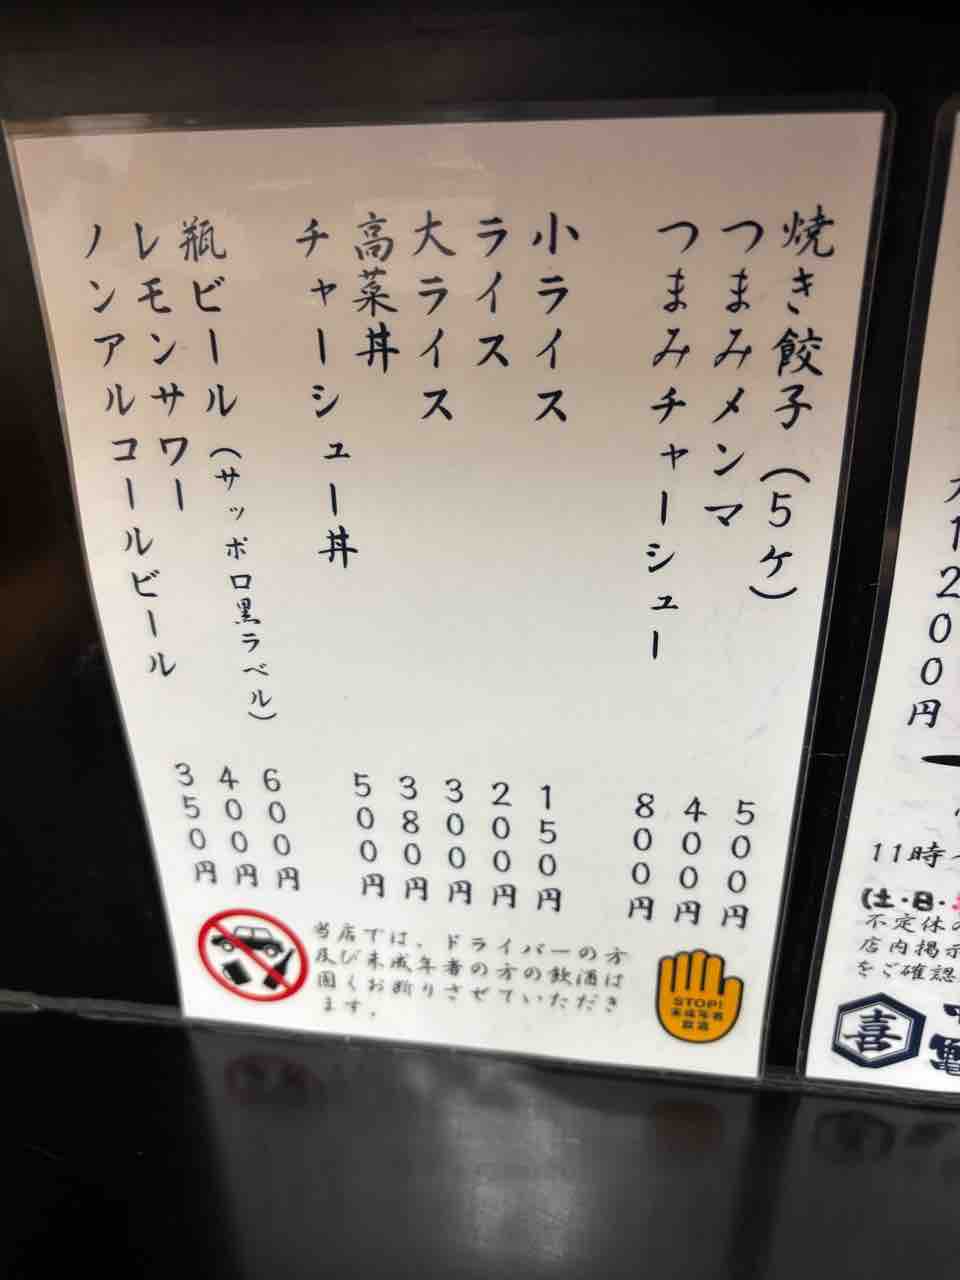 焼き餃子(5ケ) 500円
つまみメンマ 400円
つまみチャーシュー 800円
小ライス 150円
ライス 200円
大ライス 300円
高菜丼 380円
チャーシュー丼 500円
瓶ビール(サッポロ黒ラベル) 600円
レモンサワー 400円
ノンアルコールビール 350円
当店では、ドライバーの方
及び未成年者の方の飲酒は
固くお断りさせていただき
ます。
STOP!
未成年者
飲酒
1200円
11時
(土・日・
不定休の
店内掲示
をご確認
喜